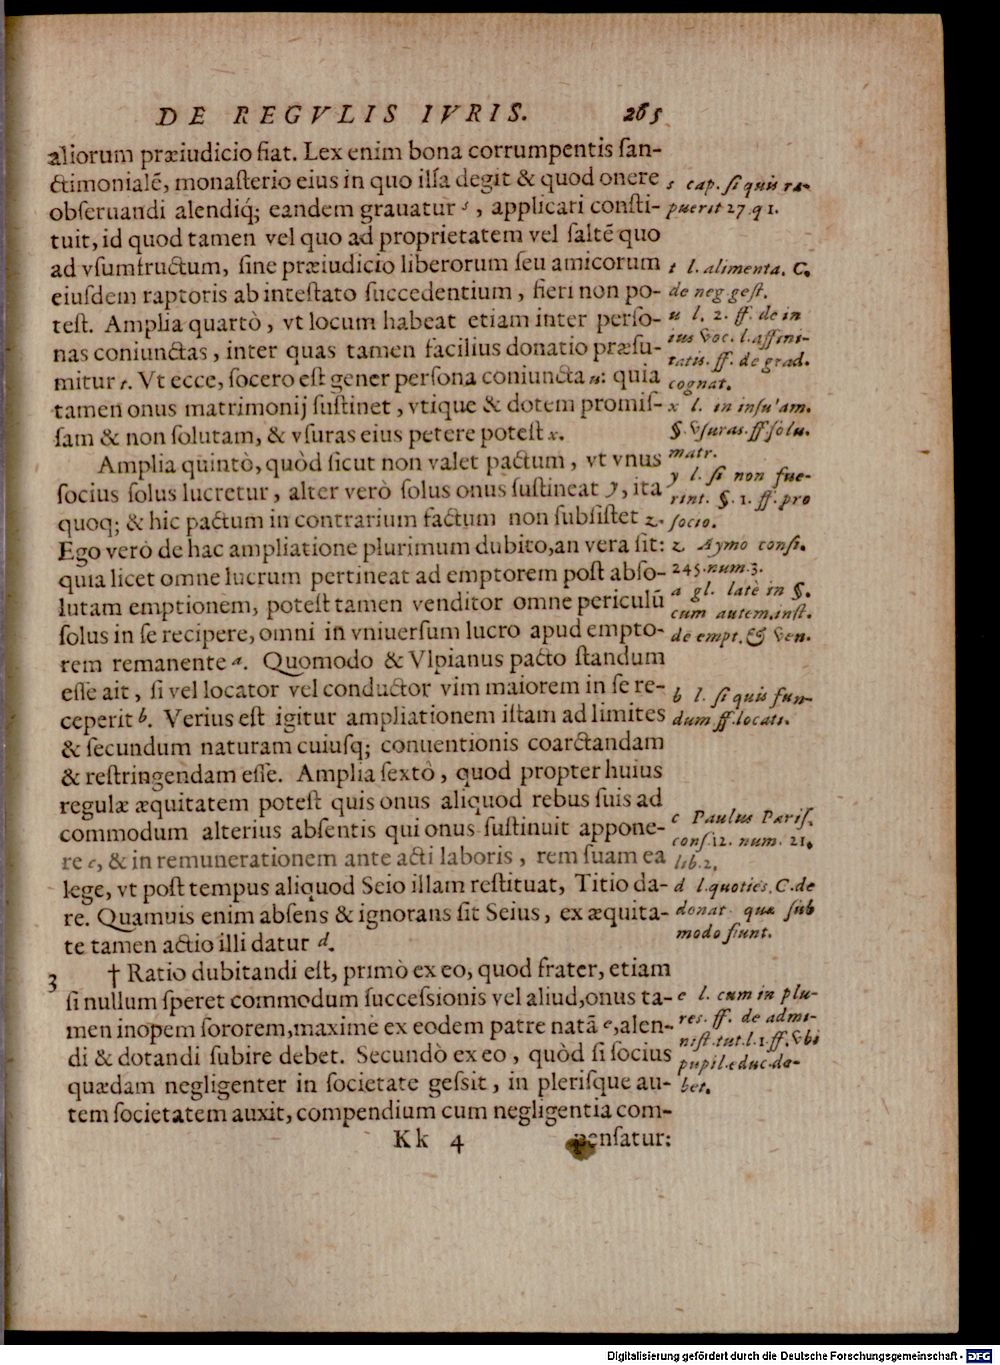 DE REGVLIS IVRIS. 265
aliorum præiudicio fiat. Lex enim bona corrumpentis ſan-
ctimonialẽ, monaſterio eius in quo illa degit & quod onere
obſeruandi alendiq́; eandem grauatur s, applicari conſti-
tuit, id quod tamen vel quo ad proprietatem vel ſaltẽ quo
ad vſumfructum, ſine præiudicio liberorum ſeu amicorum
eiuſdem raptoris ab inteſtato ſuccedentium, fieri non po-
teſt. Amplia quartò, vt locum habeat etiam inter perſo-
nas coniunctas, inter quas tamen facilius donatio præſu-
mitur t. Vt ecce, ſocero eſt gener perſona coniuncta u: quia
tamen onus matrimonij ſuſtinet, vtique & dotem promiſ-
ſam & non ſolutam, & vſuras eius petere poteſt x.
Amplia quintò, quòd ſicut non valet pactum, vt vnus
ſocius ſolus lucretur, alter verò ſolus onus ſuſtineat y, ita
quoq; & hic pactum in contrarium factum non ſubſiſtet z.
Ego verò de hac ampliatione plurimum dubito, an vera ſit:
quia licet omne lucrum pertineat ad emptorem poſt abſo-
lutam emptionem, poteſt tamen venditor omne periculũ
ſolus in ſe recipere, omni in vniuerſum lucro apud empto-
rem remanente a. Quomodo & Vlpianus pacto ſtandum
eſſe ait, ſi vel locator vel conductor vim maiorem in ſe re-
ceperit b. Verius eſt igitur ampliationem iſtam ad limites
& ſecundum naturam cuiuſq; conuentionis coarctandam
& reſtringendam eſſe. Amplia ſextò, quod propter huius
regulæ æquitatem poteſt quis onus aliquod rebus ſuis ad
commodum alterius abſentis qui onus ſuſtinuit appone-
re c, & in remunerationem ante acti laboris, rem ſuam ea
lege, vt poſt tempus aliquod Seio illam reſtituat, Titio da-
re. Quamuis enim abſens & ignorans ſit Seius, ex æquita-
te tamen actio illi datur d.
3 † Ratio dubitandi eſt, primò ex eo, quod frater, etiam
ſi nullum ſperet commodum ſucceſsionis vel aliud, onus ta-
men inopem ſororem, maximè ex eodem patre natã e, alen-
di & dotandi ſubire debet. Secundò ex eo, quòd ſi ſocius
quædam negligenter in ſocietate geſsit, in pleriſque au-
tem ſocietatem auxit, compendium cum negligentia com-
Kk 4 penſatur:
s cap. ſi quis ra-
puerit 27. q 1.
t l. alimenta. C.
de neg geſt.
u l. 2. ff. de in
ius voc. l. affini-
tatis. ff. de grad.
cognat.
x l. in inſu'am.
§. vſuras. ff. ſolu.
matr.
y l. ſi non fue-
rint. §. 1. ff. pro
ſocio.
z Aymo conſi.
245. num. 3.
a gl. latè in §.
cum autem. inſt.
de empt. & ven.
b l. ſi quis fun-
dum ff. locati.
c Paulus Pariſ.
conſ. 12. num. 21.
lib. 2.
d l. quoties. C. de
donat. quæ ſub
modo fiunt.
e l. cum in plu-
res. ff. de admi-
niſt. tut. l. 1. ff. vbi
pupil. educ. de-
bet.
Digitalisierung gefördert durch die Deutsche Forschungsgemeinschaft - DFG